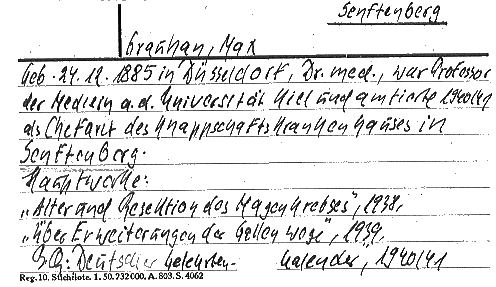 Senftenberg
Grauhan, Max
Geb. 24.12.1885 in Düsseldorf, Dr. med., war Professor
der Medizin a.d. Universität Kiel und amtierte 1940/41
als Chefarzt des Knappschaftskrankenhauses in
Senftenberg.
Hauptwerke:
„Alter und Resektion des Magenkrebses", 1938,
„Über Erweiterungen der Gallenwege", 1939.
BQ: Deutscher Gelehrten- Kalender, 1940/41
Reg. 10. Suchliste. 1. 50. 732 000. A. 803. S. 4062